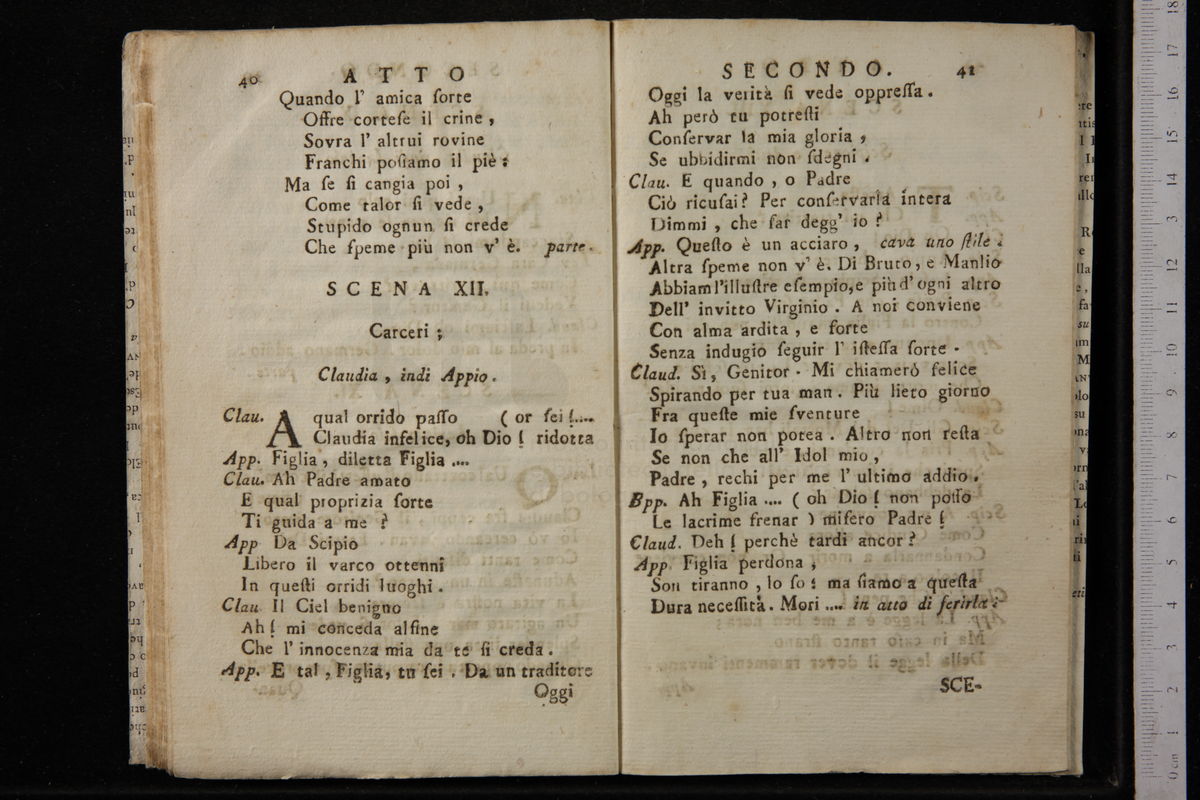 40 ATTO
Quando l' amica ſorte
Offre corteſe il crine ,
Sovra l' altrui rovine
Franchi poſiamo il piè :
Ma ſe ſi cangia poi ,
Come talor ſi vede ,
Stupido ognun ſi crede
Che ſpeme più non v' è. parte.
SCENA XII.
Carceri ;
Claudia , indi Appio .
Clau. A qual orrido paſſo ( or ſei !....
Claudia infelice, oh Dio ! ridotta
App. Figlia , diletta Figlia ....
Clau. Ah Padre amato
E qual proprizia ſorte
Ti guida a me ?
App Da Scipio
Libero il varco ottenni
In queſti orridi luoghi .
Clau. Il Ciel benigno
Ah ! mi conceda alfine
Che l' innocenza mia da te ſi creda .
App. E tal , Figlia, tu ſei . Da un traditore
Oggi
SECONDO. 41
Oggi la verità ſi vede oppreſſa .
Ah però tu potreſti
Conſervar la mia gloria ,
Se ubbidirmi non ſdegni .
Clau. E quando , o Padre
Ciò ricuſai ? Per conſervarla intera
Dimmi , che far degg' io ?
App. Queſto è un acciaro , cava uno ſtile .
Altra ſpeme non v' è. Di Bruto, e Manlio
Abbiam l'illuſtre eſempio,e più d' ogni altro
Dell' invitto Virginio . A noi conviene
Con alma ardita , e forte
Senza indugio ſeguir l' iſteſſa ſorte .
Claud. Sì, Genitor . Mi chiamerò felice
Spirando per tua man . Più lieto giorno
Fra queſte mie ſventure
Io ſperar non potea . Altro non reſta
Se non che all' Idol mio ,
Padre , rechi per me l' ultimo addio .
Bpp. Ah Figlia .... ( oh Dio ! non poſſo
Le lacrime frenar ) miſero Padre !
Claud. Deh ! perchè tardi ancor ?
App. Figlia perdona ,
Son tiranno , lo ſo : ma ſiamo a queſta
Dura neceſſità. Mori .... in atto di ferirla :
SCE-